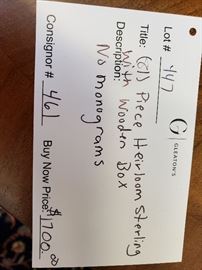 G
GLEATON'S
Lot # 447
Title: (61) Piece Heirloom Sterling
With Wooden Box
Description:
No monograms
Consignor # 461 Buy Now Price: $1700.00